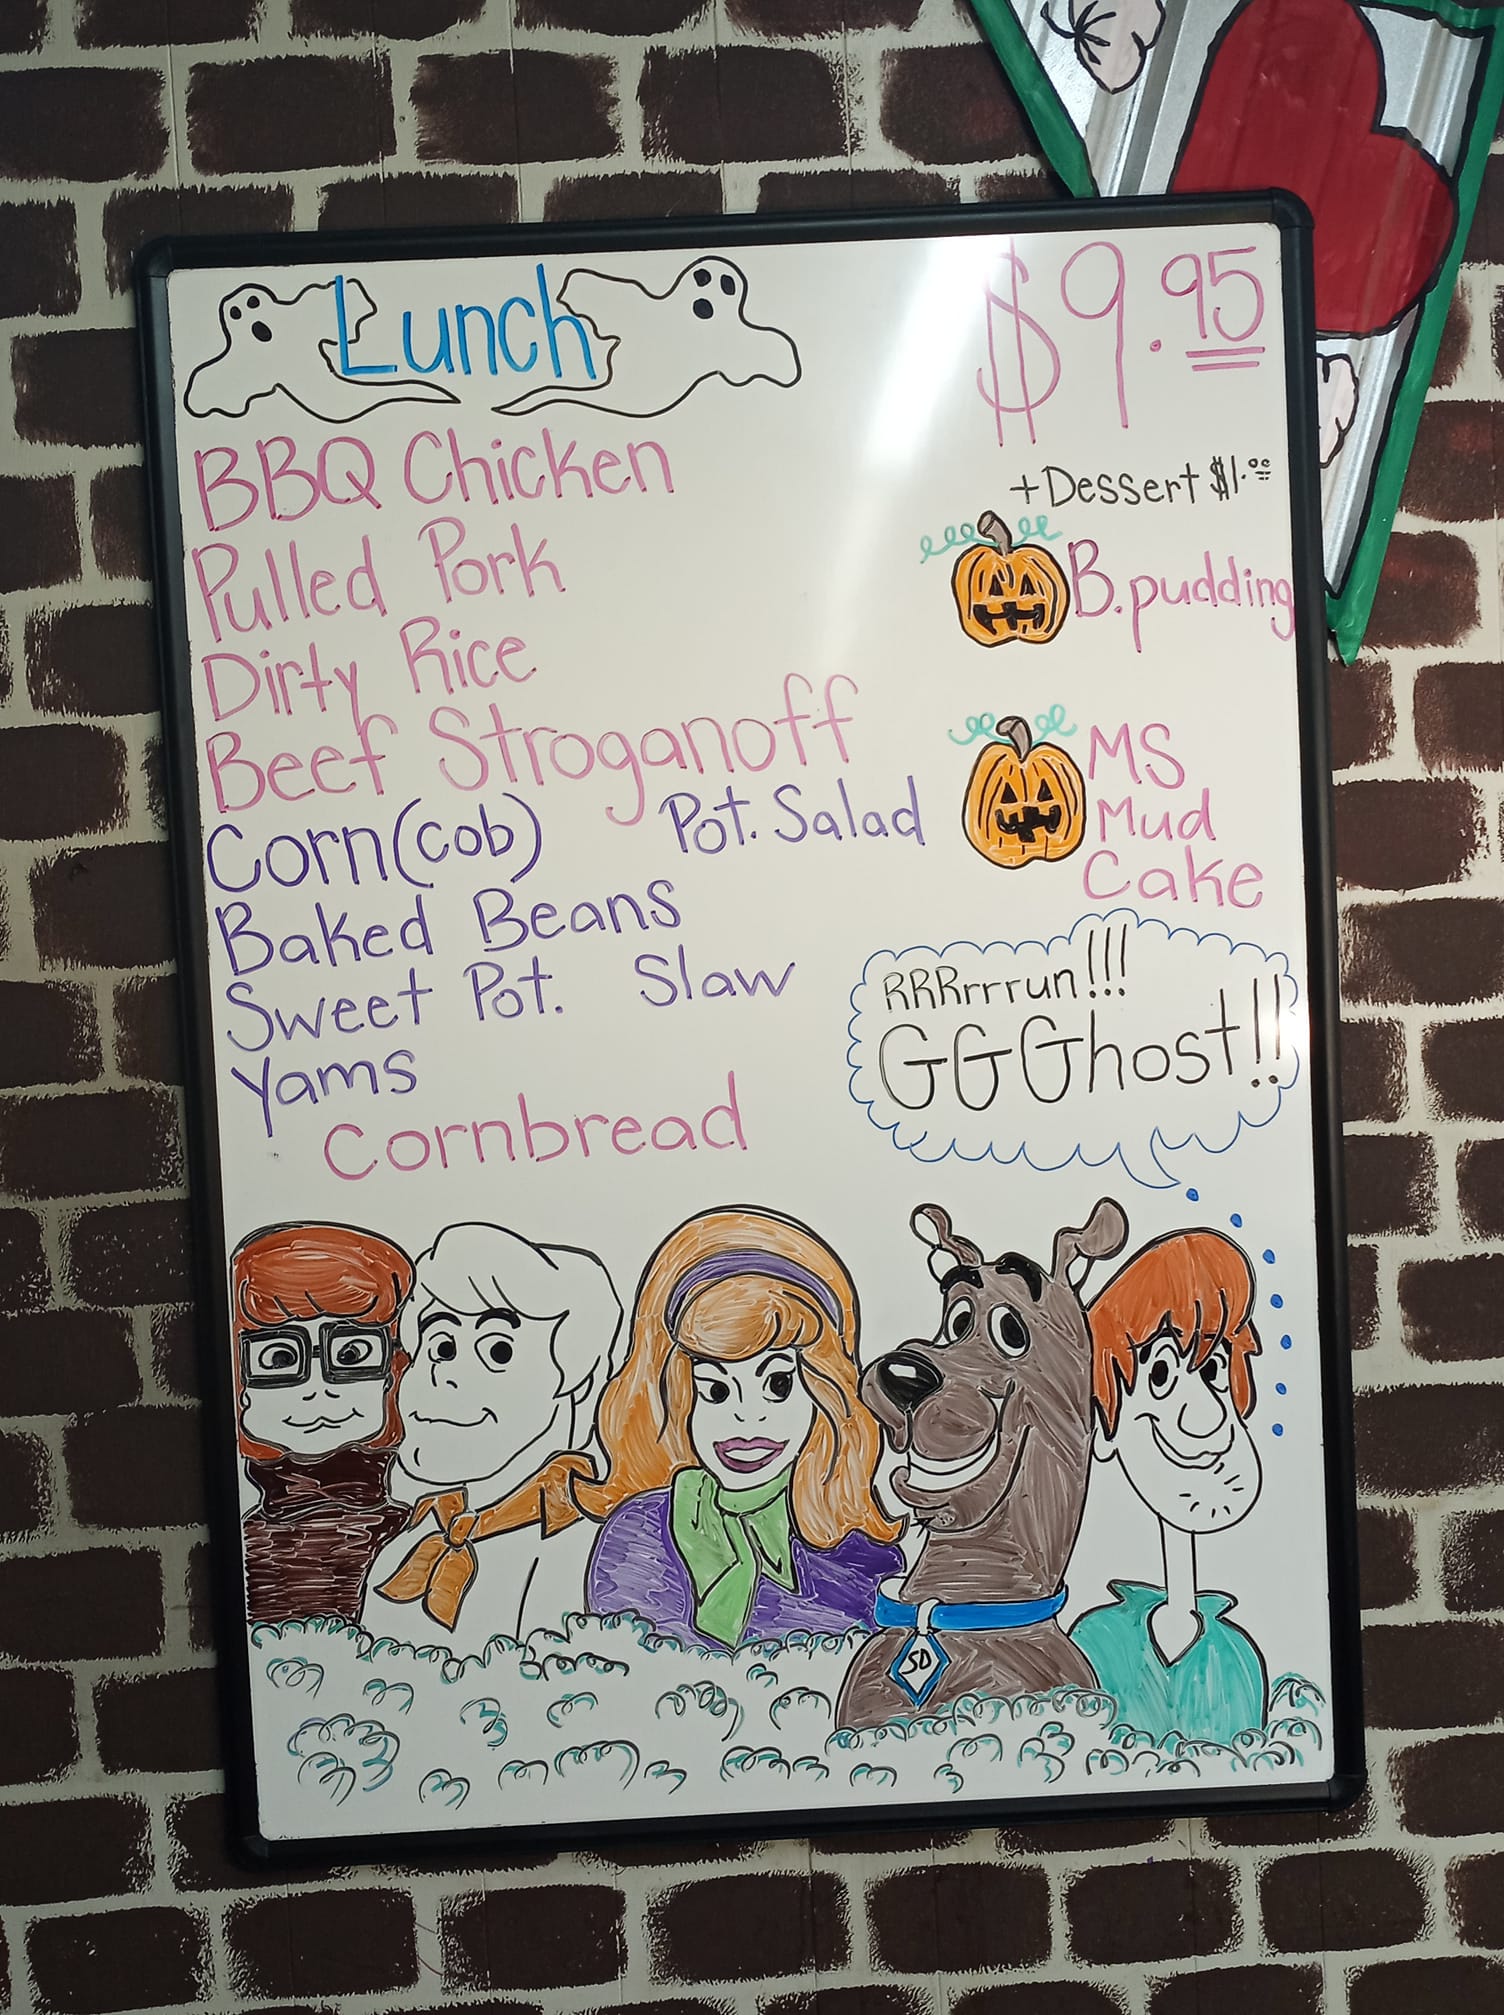 Lunch
$9.95
BBQ Chicken
Pulled Pork
Dirty Rice
Beef Stroganoff
Corn(cob) Pot. Salad
Baked Beans
Sweet Pot. Slaw
Yams
Cornbread
+Dessert $1.00
B. pudding
MS
Mud
Cake
RRRrrrun!!!
GGGhost!!
SD